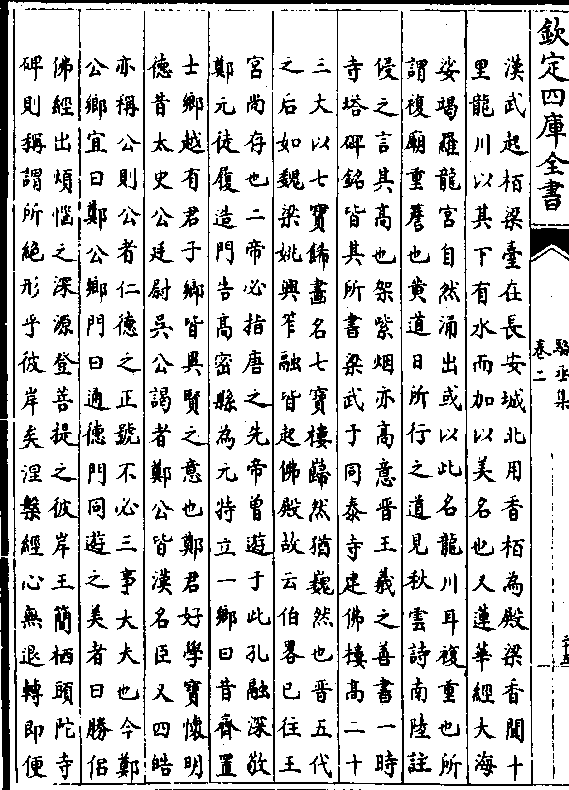 欽定四庫全書
駱丞集
卷二
漢武起栢梁臺在長安城北用香栢為殿梁香聞十
里龍川以其下有水而加以美名也又蓮華經大海
娑竭羅龍宮自然涌出或以此名龍川耳複重也所
謂複廟重簷也黄道日所行之道見秋雲詩南陸註
侵之言其高也架紫烟亦高意晉王羲之善書一時
寺塔碑銘皆其所書梁武于同泰寺建佛樓高二十
三大以七寶飾畫名七寶樓巋然猶巍然也晉五代
之后如魏梁姚興笮融皆起佛殿故云伯畧已往王
宮尚存也二帝必指唐之先帝曾遊于此孔融深敬
鄭元徒履造門告高密縣為元特立一鄉曰昔齊置
士鄉越有君子鄉皆異賢之意也鄭君好學實懷明
德昔太史公廷尉吳公謁者鄭公皆漢名臣又四皓
亦稱公則公者仁德之正號不必三事大夫也今鄭
公鄉宜曰鄭公鄉門曰通德門同遊之美者曰勝侣
佛經出煩惱之深源登菩提之彼岸王簡栖頭陀寺
碑則稱謂所絶形乎彼岸矣涅槃經心無退轉即便